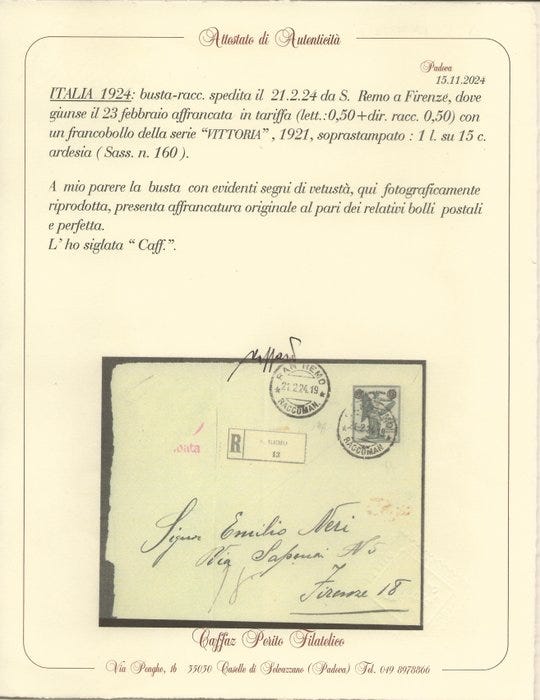 Attestato di Autenticità
Padova
15.11.2024
ITALIA 1924: busta-racc. spedita il 21.2.24 da S. Remo a Firenze, dove
giunse il 23 febbraio affrancata in tariffa (lett.:0,50+dir. racc. 0,50) con
un francobollo della serie "VITTORIA", 1921, soprastampato : 1 l. su 15 c.
ardesia ( Sass. n. 160 ).
A mio parere la busta con evidenti segni di vetustà, qui fotograficamente
riprodotta, presenta affrancatura originale al pari dei relativi bolli postali
e perfetta.
L' ho siglata " Caff.".
SAN REMO
21.2.24.19
RACCOMAN.
RACCOMAN.
R
13
Signor Emilio Neri
Via N 5
Firenze 18
Caffaz Perito Filatelico
Via Penghe, 16 35030 Caselle di Selvazzano (Padova) Tel. 049 8978866